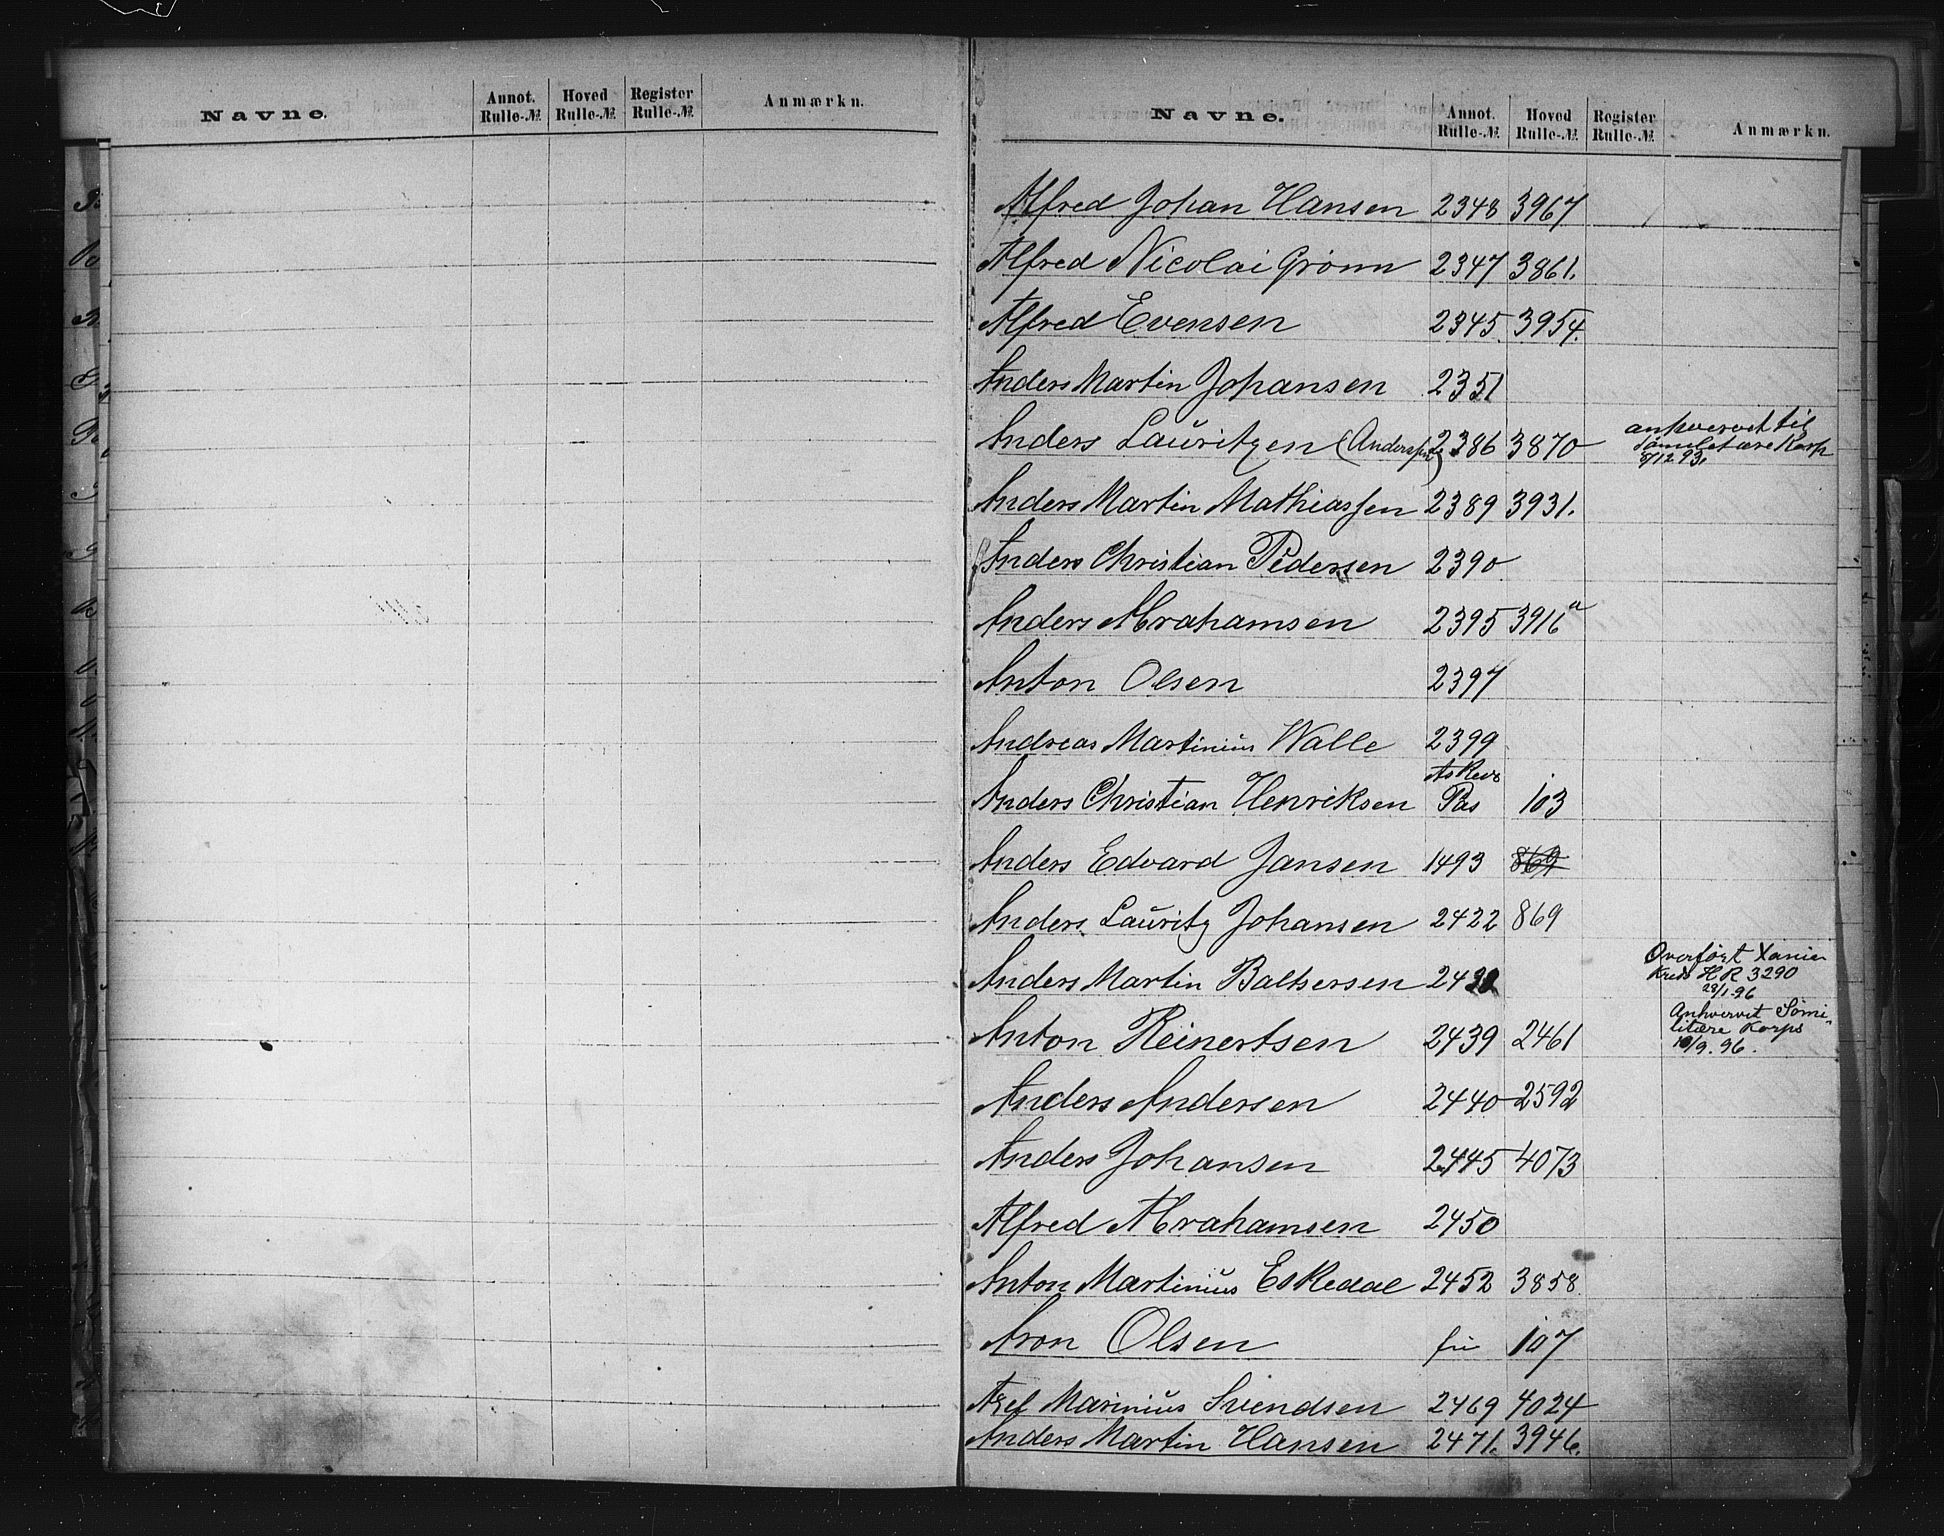 Navne. Annot. Rulle-№ Hoved Rulle-№ Register Rulle-№ Anmærkn.
Navne. Annot. Rulle-№ Hoved Rulle-№ Register Rulle-№ Anmærkn.
Alfred Johan Hansen 2348 3967
Alfred Nicolai Grönn 2347 3861.
Alfred Evensen 2345. 3954.
Anders Martin Johansen 2351
Anders Lauritzen (Anderssen) 2386 3870 anhvervet til
Sömilitære Korps
8/12 93.
Anders Martin Mathiassen 2389 3931.
Anders Christian Pedersen 2390.
Anders Abrahamsen 2395 3916a
Anton Olsen 2397
Andreas Martinius Walle 2399
Anders Christian Henriksen Pas 103
Anders Edvard Jansen 1493 869
Anders Lauritz Johansen 2422 869
Anders Martin Baltsersen Overfört Xania
Kreds H R 3290
28/1-96
Anton Reinertsen 2439 2461 Anhvervet Sömi-
litære Korps
10/9. 96.
Anders Andersen 2440 2592
Anders Johansen 2445 4073
Alfred Abrahamsen 2450
Anton Martinius Eskedal 2452 3858.
Aron Olsen fri 107
Axel Marinius Svendsen 2469 4024
Anders Martin Hansen 2471. 3946.